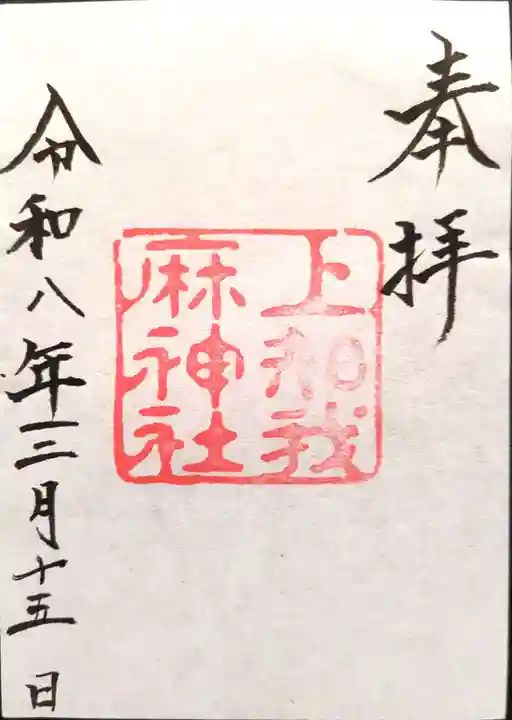 奉拝
上知我
麻神社
令和八年三月十五日